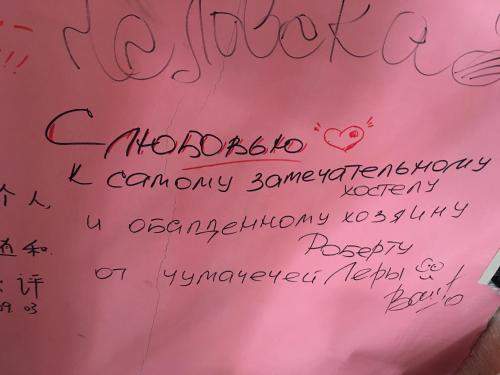 человека
!!!
С любовью
к самому замечательному
хостелу
и обалденному хозяину
Роберту
от чумачечей Леры
个人
和
评
09.03